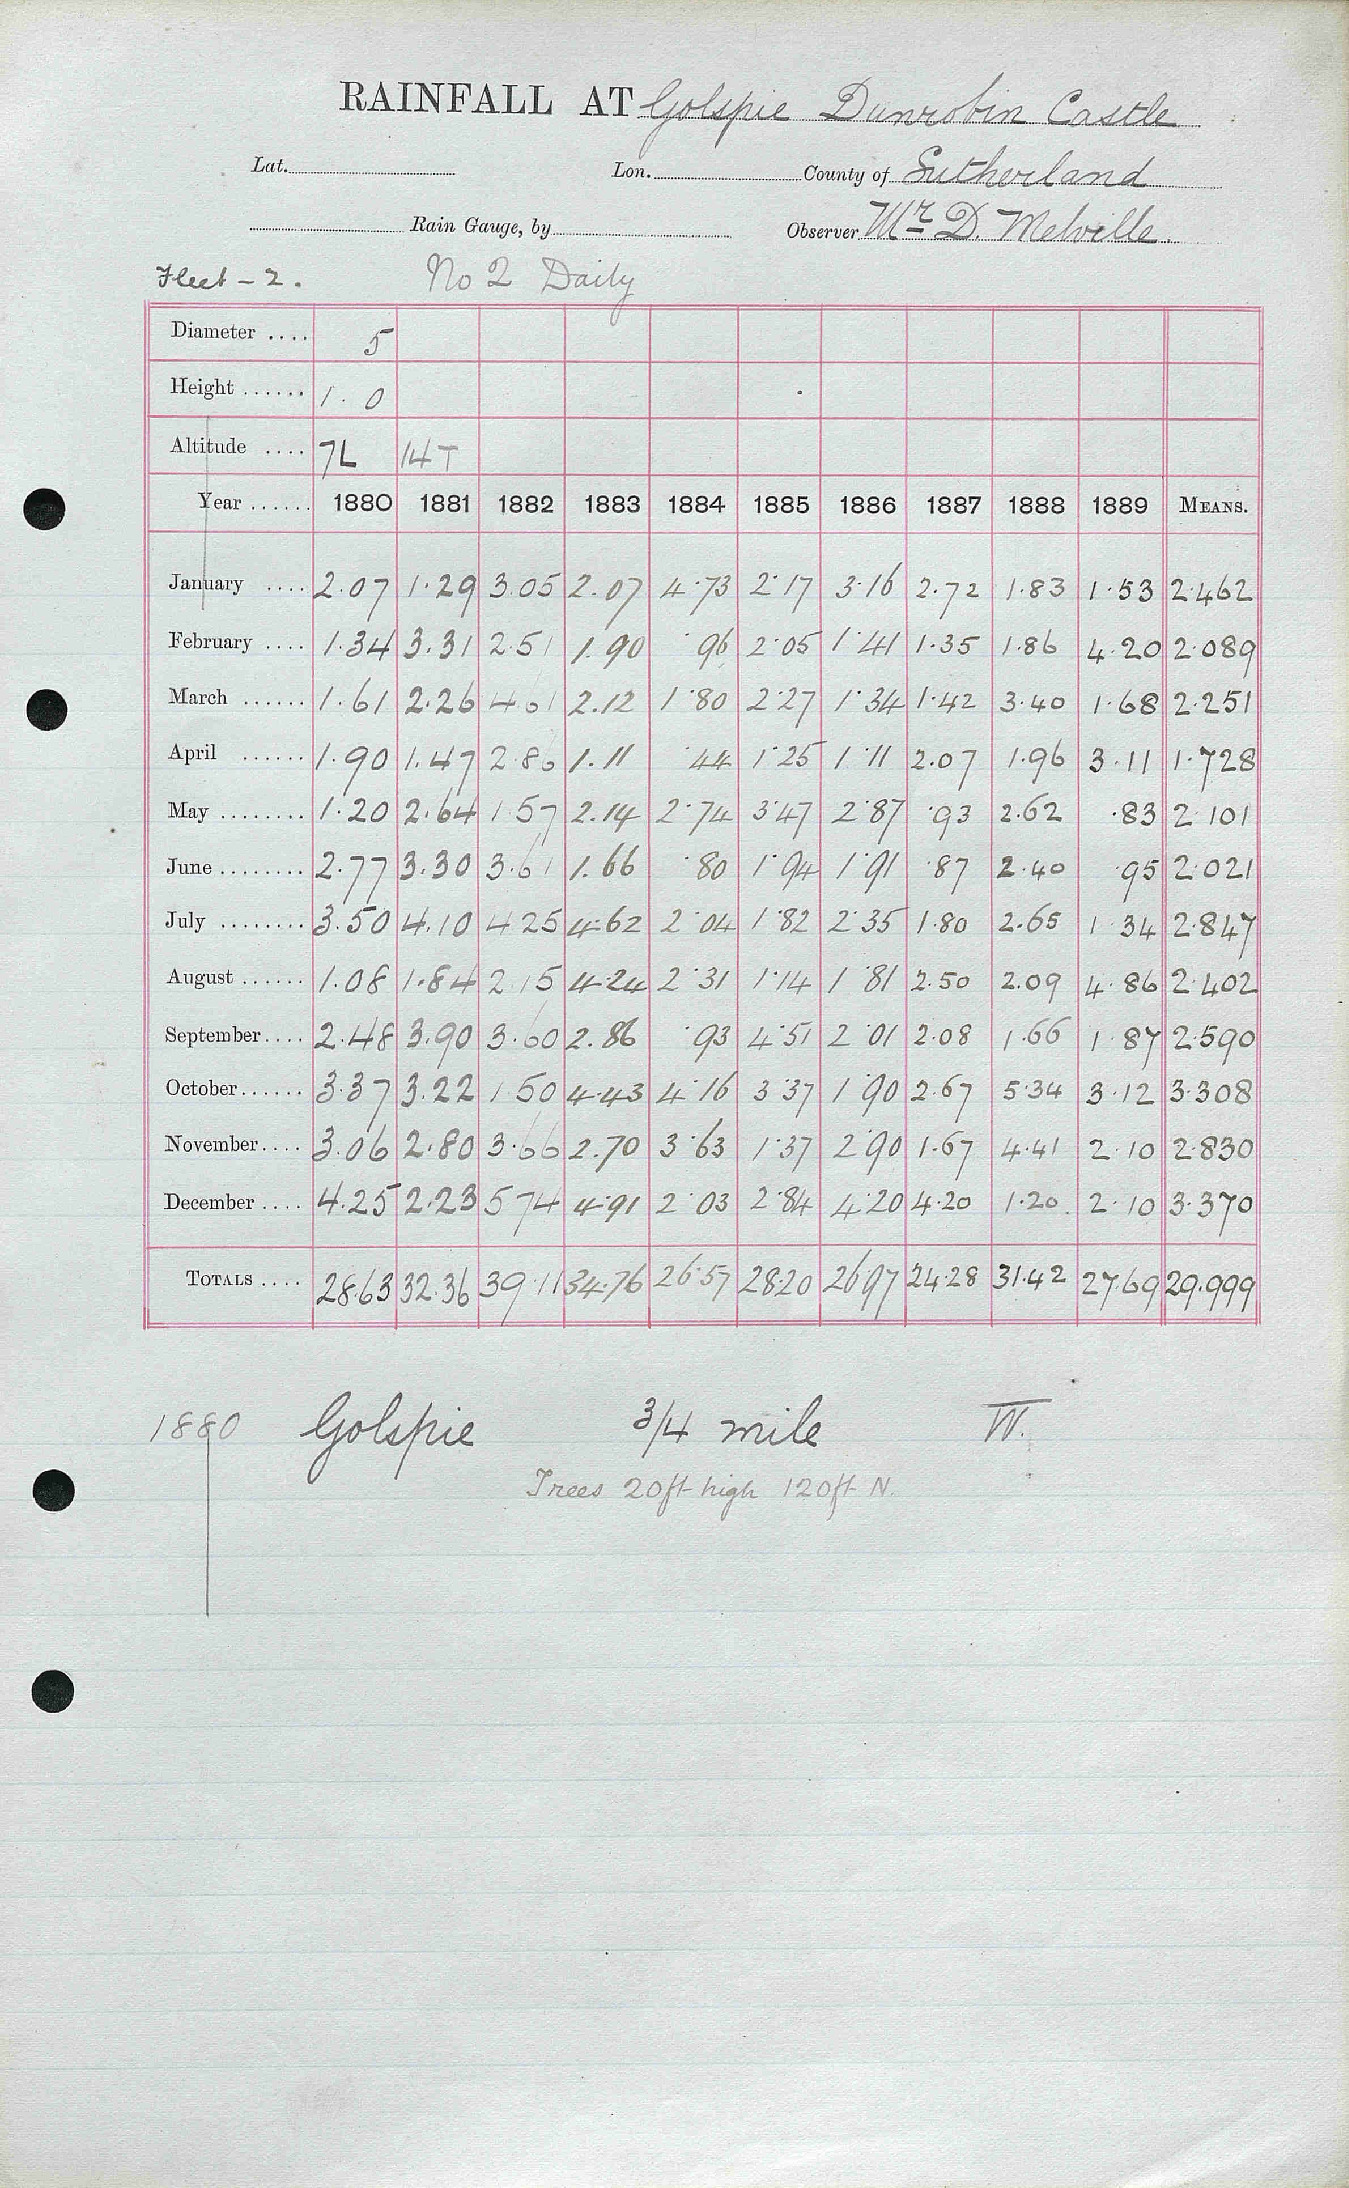 RAINFALL AT Golspie Dunrobin Castle
Lat. Lon. County of Sutherland
Rain Gauge, by Observer Mr D. Melville.
Fleet - 2. No 2 Daily
Diameter .... 5
Height ...... 1. 0
Altitude .... 7L 14T
Year ...... 1880 1881 1882 1883 1884 1885 1886 1887 1888 1889 MEANS.
January .... 2.07 1.29 3.05 2.07 4.73 2.17 3.16 2.72 1.83 1.53 2.462
February .... 1.34 3.31 2.51 1.90 .96 2.05 1.41 1.35 1.86 4.20 2.089
March ...... 1.61 2.26 4.61 2.12 1.80 2.27 1.34 1.42 3.40 1.68 2.251
April ...... 1.90 1.47 2.86 1.11 .44 1.25 1.11 2.07 1.96 3.11 1.728
May ........ 1.20 2.64 1.57 2.14 2.74 3.47 2.87 .93 2.62 .83 2.101
June ........ 2.77 3.30 3.61 1.66 .80 1.94 1.91 .87 2.40 .95 2.021
July ........ 3.50 4.10 4.25 4.62 2.04 1.82 2.35 1.80 2.65 1.34 2.847
August ...... 1.08 1.84 2.15 4.24 2.31 1.14 1.81 2.50 2.09 4.86 2.402
September.... 2.48 3.90 3.60 2.86 .93 4.51 2.01 2.08 1.66 1.87 2.590
October...... 3.37 3.22 1.50 4.43 4.16 3.37 1.90 2.67 5.34 3.12 3.308
November.... 3.06 2.80 3.66 2.70 3.63 1.37 2.90 1.67 4.41 2.10 2.830
December .... 4.25 2.23 5.74 4.91 2.03 2.84 4.20 4.20 1.20 2.10 3.370
TOTALS .... 28.63 32.36 39.11 34.76 26.57 28.20 26.97 24.28 31.42 27.69 29.999
1880 Golspie 3/4 mile W.
Trees 20ft high 120ft N.